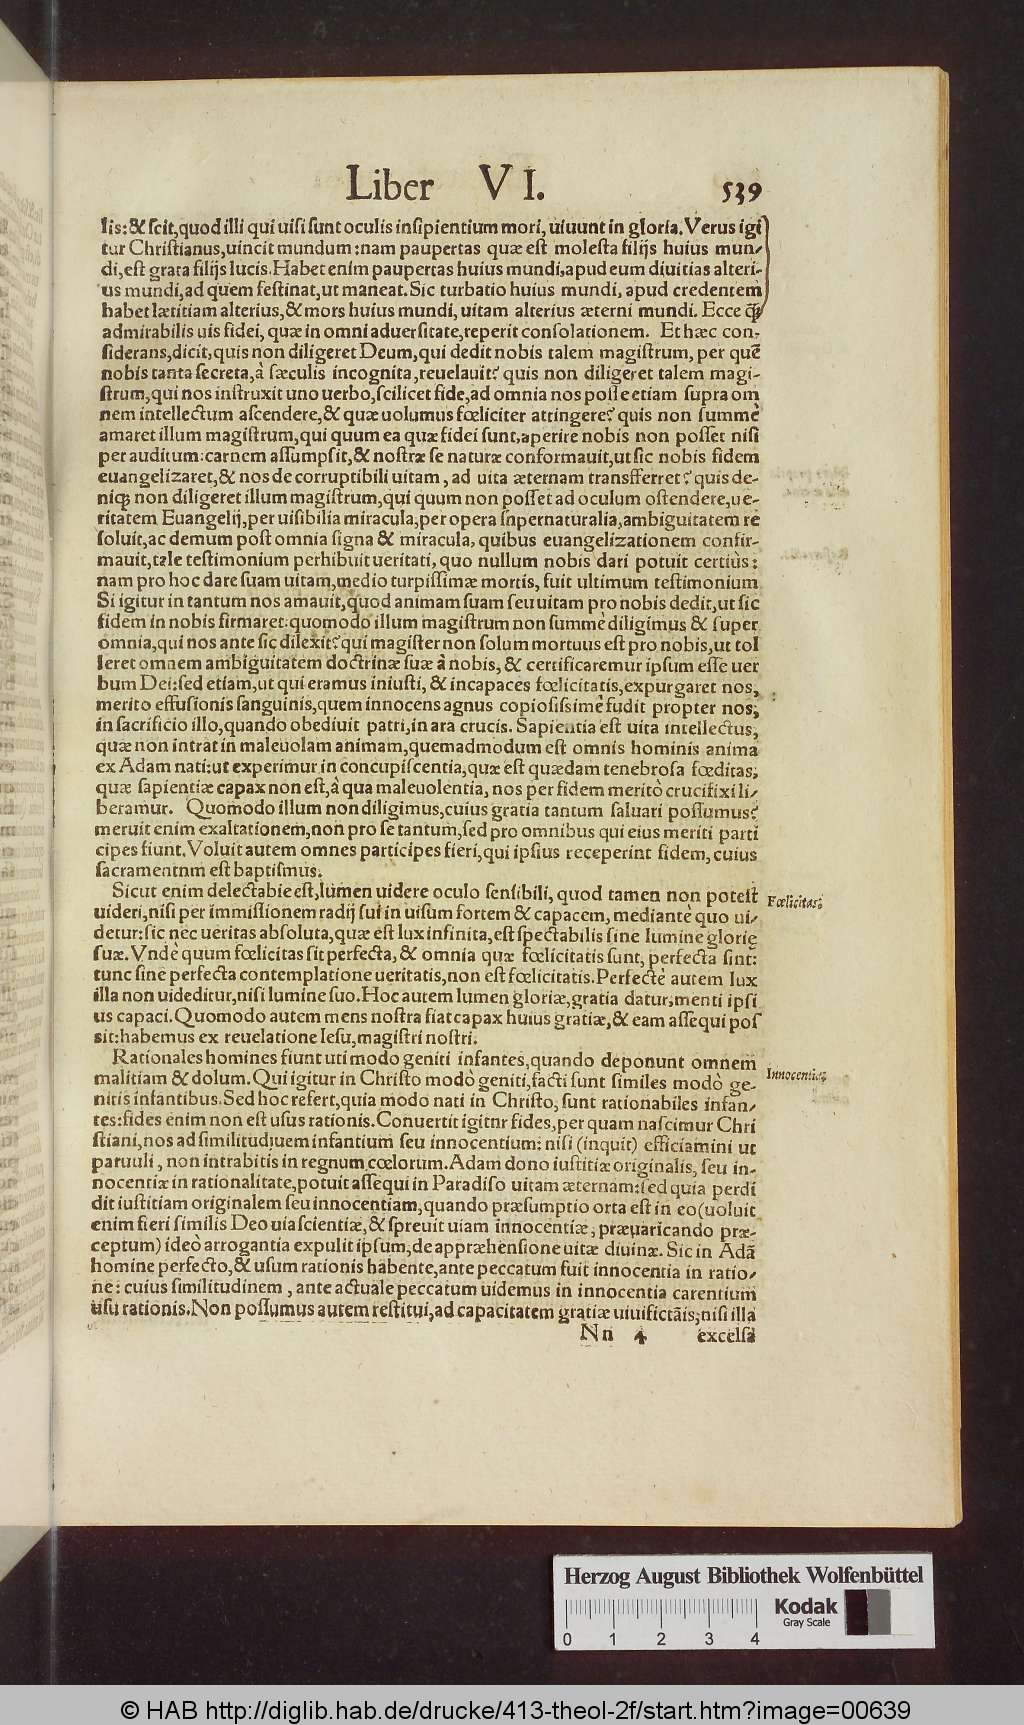 Liber VI. 539
lis: & scit, quod illi qui uisi sunt oculis insipientium mori, uiuunt in gloria. Verus igi
tur Christianus, uincit mundum: nam paupertas quæ est molesta filijs huius mun-
di, est grata filijs lucis. Habet enim paupertas huius mundi, apud eum diuitias alteri-
us mundi, ad quem festinat, ut maneat. Sic turbatio huius mundi, apud credentem
habet lætitiam alterius, & mors huius mundi, uitam alterius æterni mundi. Ecce ꝙ̃
admirabilis uis fidei, quæ in omni aduersitate, reperit consolationem. Et hæc con-
siderans, dicit, quis non diligeret Deum, qui dedit nobis talem magistrum, per quẽ
nobis tanta secreta, à sæculis incognita, reuelauit? quis non diligeret talem magi-
strum, qui nos instruxit uno uerbo, scilicet fide, ad omnia nos posse etiam supra om
nem intellectum ascendere, & quæ uolumus fœliciter attingere? quis non summè
amaret illum magistrum, qui quum ea quæ fidei sunt, aperire nobis non posset nisi
per auditum: carnem assumpsit, & nostræ se naturæ conformauit, ut sic nobis fidem
euangelizaret, & nos de corruptibili uitam, ad uita æternam transfferret? quis de-
niqꝫ non diligeret illum magistrum, qui quum non posset ad oculum ostendere, ue-
ritatem Euangelij, per uisibilia miracula, per opera supernaturalia, ambiguitatem re
soluit, ac demum post omnia signa & miracula, quibus euangelizationem confir-
mauit, tale testimonium perhibuit ueritati, quo nullum nobis dari potuit certiùs:
nam pro hoc dare suam uitam, medio turpissimæ mortis, fuit ultimum testimonium
Si igitur in tantum nos amauit, quod animam suam seu uitam pro nobis dedit, ut sic
fidem in nobis firmaret: quomodo illum magistrum non summè diligimus & super
omnia, qui nos ante sic dilexit? qui magister non solum mortuus est pro nobis, ut tol
leret omnem ambiguitatem doctrinæ suæ à nobis, & certificaremur ipsum esse uer
bum Dei: sed etiam, ut qui eramus iniusti, & incapaces fœlicitatis, expurgaret nos,
merito effusionis sanguinis, quem innocens agnus copiosissimè fudit propter nos,
in sacrificio illo, quando obediuit patri, in ara crucis. Sapientia est uita intellectus,
quæ non intrat in maleuolam animam, quemadmodum est omnis hominis anima
ex Adam nati: ut experimur in concupiscentia, quæ est quædam tenebrosa fœditas,
quæ sapientiæ capax non est, à qua maleuolentia, nos per fidem meritò crucifixi li-
beramur. Quomodo illum non diligimus, cuius gratia tantum saluari possumus?
meruit enim exaltationem, non pro se tantum, sed pro omnibus qui eius meriti parti
cipes fiunt. Voluit autem omnes participes fieri, qui ipsius receperint fidem, cuius
sacramentnm est baptismus.
Sicut enim delectabie est, lumen uidere oculo sensibili, quod tamen non potest Fœlicitas.
uideri, nisi per immissionem radij sui in uisum fortem & capacem, mediantè quo ui-
detur: sic nec ueritas absoluta, quæ est lux infinita, est spectabilis sine lumine glorię
suæ. Vndè quum fœlicitas sit perfecta, & omnia quæ fœlicitatis sunt, perfecta sint:
tunc sine perfecta contemplatione ueritatis, non est fœlicitatis. Perfectè autem lux
illa non uideditur, nisi lumine suo. Hoc autem lumen gloriæ, gratia datur, menti ipsi
us capaci. Quomodo autem mens nostra fiat capax huius gratiæ, & eam assequi pos
sit: habemus ex reuelatione Iesu, magistri nostri.
Rationales homines fiunt uti modo geniti infantes, quando deponunt omnem Innocentia.
malitiam & dolum. Qui igitur in Christo modò geniti, facti sunt similes modò ge-
nitis infantibus. Sed hoc refert, quia modo nati in Christo, sunt rationabiles infan-
tes: fides enim non est usus rationis. Conuertit igitnr fides, per quam nascimur Chri
stiani, nos ad similitudiuem infantium seu innocentium: nisi (inquit) efficiamini ut
paruuli, non intrabitis in regnum cœlorum. Adam dono iustitiæ originalis, seu in-
nocentiæ in rationalitate, potuit assequi in Paradiso uitam æternam: sed quia perdi
dit iustitiam originalem seu innocentiam, quando præsumptio orta est in eo (uoluit
enim fieri similis Deo uia scientiæ, & spreuit uiam innocentiæ, præuaricando præ-
ceptum) ideò arrogantia expulit ipsum, de appræhensione uitæ diuinæ. Sic in Adã
homine perfecto, & usum rationis habente, ante peccatum fuit innocentia in ratio-
ne: cuius similitudinem, ante actuale peccatum uidemus in innocentia carentium
usu rationis. Non possumus autem restitui, ad capacitatem gratiæ uiuifictãis, nisi illa
Nn 4 excelsa
Herzog August Bibliothek Wolfenbüttel
Kodak
Gray Scale
0 1 2 3 4
© HAB http://diglib.hab.de/drucke/413-theol-2f/start.htm?image=00639